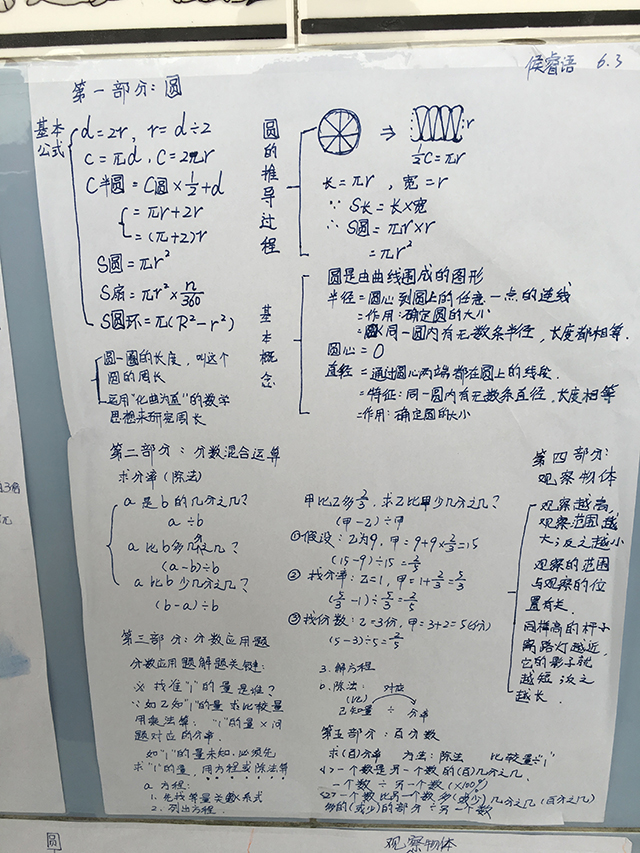 侯睿语 6.3
第一部分：圆
基本公式
d=2r, r=d÷2
C=πd, C=2πr
C半圆=C圆×1/2+d
=πr+2r
=(π+2)r
S圆=πr²
S扇=πr²×n/360
S圆环=π(R²-r²)
圆一圈的长度，叫这个
圆的周长
运用"化曲为直"的数学
思想来研究周长
圆的推导过程
⇒ r
1/2C=πr
长=πr，宽=r
∵ S长=长×宽
∴ S圆=πr×r
=πr²
基本概念
圆是由曲线围成的图形
半径=圆心到圆上的任意一点的连线
=作用：确定圆的大小
=同一圆内有无数条半径，长度都相等.
圆心=O
直径=通过圆心两端都在圆上的线段.
=特征：同一圆内有无数条直径，长度相等
=作用：确定圆的大小
第二部分：分数混合运算
求分率(除法)
a是b的几分之几？
a÷b
a比b多几分之几？
(a-b)÷b
a比b少几分之几？
(b-a)÷b
甲比乙多2/3，求乙比甲少几分之几？
(甲-乙)÷甲
①假设：乙为9，甲=9+9×2/3=15
(15-9)÷15=2/5
②找分率：乙=1，甲=1+2/3=5/3
(5/3-1)÷5/3=2/5
③找份数：乙=3份，甲=3+2=5(份)
(5-3)÷5=2/5
第三部分：分数应用题
分数应用题解题关键：
找准"1"的量是谁？
如已知"1"的量求比较量
用乘法算："1"的量×问
题对应的分率.
如"1"的量未知，必须先
求"1"的量，用方程或除法算
a.方程：
1.先找等量关系式
2.列出方程.
3.解方程
b.除法： 对应
已知量÷分率
第四部分：
观察物体
观察越高，
观察范围越
大；反之越小
观察的范围
与观察的位
置有关.
同样高的杆子
离路灯越近，
它的影子就
越短；反之
越长.
第五部分：百分数
求(百)分率 方法：除法 比较量÷"1"
<1>一个数是另一个数的(百)几分之几.
一个数÷另一个数(×100%)
<2>一个数比另一个数多(或少)几分之几(百分之几)
多的(或少)的部分÷另一个数
圆
观察物体